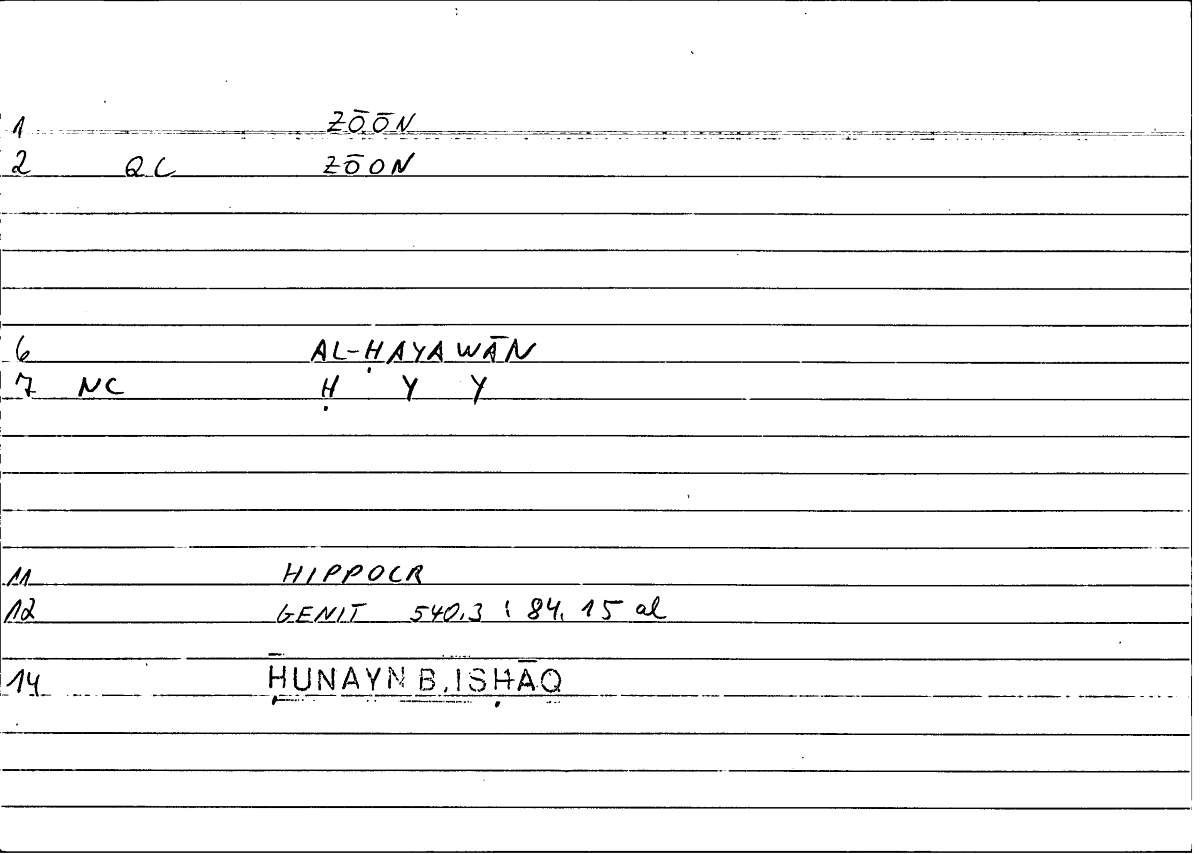 1 ZŌŌN
2 QC ZŌON
6 AL-ḤAYAWĀN
7 NC Ḥ Y Y
11 HIPPOCR
12 GENIT 540.3 : 84, 15 al
14 ḤUNAYN B. ISḤĀQ